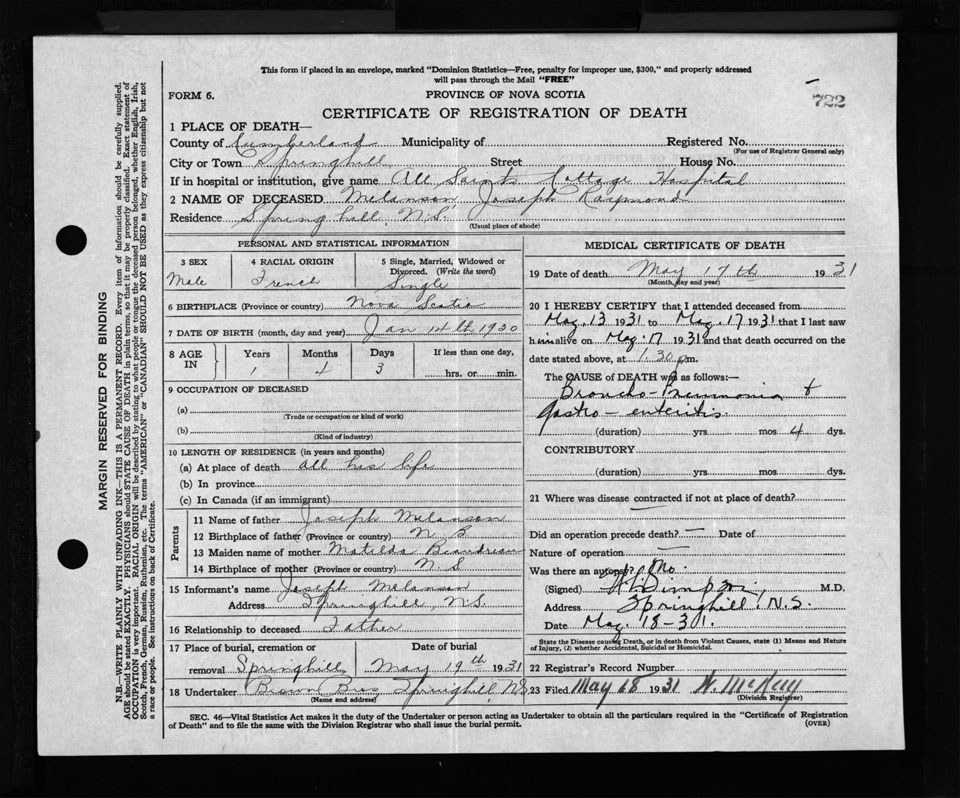 This form if placed in an envelope, marked "Dominion Statistics—Free, penalty for improper use, $300," and properly addressed
will pass through the Mail "FREE"
FORM 6.
PROVINCE OF NOVA SCOTIA
722
CERTIFICATE OF REGISTRATION OF DEATH
1 PLACE OF DEATH—
County of Cumberland Municipality of Registered No.
(For use of Registrar General only)
City or Town Springhill Street House No.
If in hospital or institution, give name All Saints Cottage Hospital
2 NAME OF DECEASED Melanson Joseph Raymond
Residence Springhill, N.S.
(Usual place of abode)
PERSONAL AND STATISTICAL INFORMATION
3 SEX
Male
4 RACIAL ORIGIN
French
5 Single, Married, Widowed or
Divorced. (Write the word)
Single
6 BIRTHPLACE (Province or country) Nova Scotia
7 DATE OF BIRTH (month, day and year) Jan 14th 1930
8 AGE IN
Years Months Days If less than one day,
1 4 3 hrs. or min.
9 OCCUPATION OF DECEASED
(a)
(Trade or occupation or kind of work)
(b)
(Kind of industry)
10 LENGTH OF RESIDENCE (in years and months)
(a) At place of death all his life
(b) In province
(c) In Canada (if an immigrant)
Parents
11 Name of father Joseph Melanson
12 Birthplace of father (Province or country) N B
13 Maiden name of mother Matilda
14 Birthplace of mother (Province or country) N S
15 Informant's name Joseph Melanson
Address Springhill, N.S.
16 Relationship to deceased Father
17 Place of burial, cremation or Date of burial
removal Springhill May 19th 1931
18 Undertaker Brown Bros Springhill, N.S.
(Name and address)
MEDICAL CERTIFICATE OF DEATH
19 Date of death May 17th 1931
(Month, day and year)
20 I HEREBY CERTIFY that I attended deceased from
May 13 1931 to May 17 1931 that I last saw
him alive on May 17 1931 and that death occurred on the
date stated above, at 1.30 p.m.
The CAUSE OF DEATH was as follows:—
Broncho-Pneumonia +
gastro-enteritis.
(duration) yrs mos 4 dys.
CONTRIBUTORY
(duration) yrs mos dys.
21 Where was disease contracted if not at place of death?
—
Did an operation precede death? — Date of
Nature of operation —
Was there an autopsy? No.
(Signed) M.D.
Address Springhill, N.S.
Date May 18-31.
State the Disease causing Death, or in death from Violent Causes, state (1) Means and Nature
of Injury, (2) whether Accidental, Suicidal or Homicidal.
22 Registrar's Record Number
23 Filed May 18 1931 McKay
(Division Registrar)
SEC. 46—Vital Statistics Act makes it the duty of the Undertaker or person acting as Undertaker to obtain all the particulars required in the "Certificate of Registration
of Death" and to file the same with the Division Registrar who shall issue the burial permit.
(OVER)
MARGIN RESERVED FOR BINDING
N.B.—WRITE PLAINLY WITH UNFADING INK—THIS IS A PERMANENT RECORD. Every item of information should be carefully supplied.
AGE should be stated EXACTLY. PHYSICIANS should STATE CAUSE OF DEATH in plain terms, so that it may be properly classified. Exact statement of
OCCUPATION is very important. RACIAL ORIGIN will be described by stating to what people or tongue the deceased person belonged, whether English, Irish,
Scotch, French, German, Russian, Ruthenian, etc. The terms "AMERICAN" or "CANADIAN" SHOULD NOT BE USED as they express citizenship but not
a race or people. See instructions on back of Certificate.